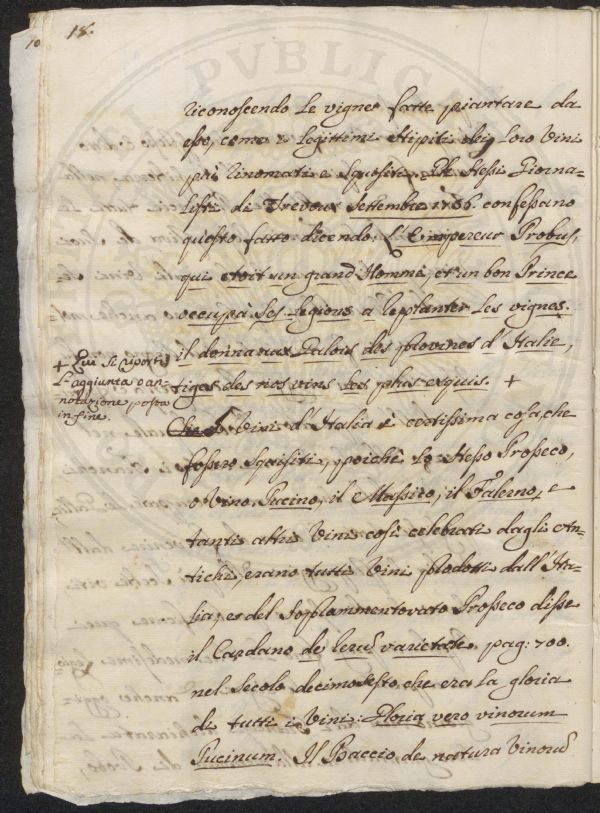 10
18.
riconoscendo le vigne fatte piantare da
esso, come i legittimi stipiti dei loro vini
più rinomati e squisiti. Gli stessi Giorna-
listi di Trevoux Settembre 1756. confessano
questo fatto dicendo: L'Empereur Probus,
qui etoit un grand Homme, et un bon Prince
occupa ses legions à replanter les vignes.
il donna aux Galois des provines d'Italie,
tiges des nos vins les plus exquis. +
+ Qui si riporti
l'aggiunta o an-
notazione posta
in fine.
Che i Vini d'Italia è certissima cosa, che
fossero squisiti, poichè lo stesso Prosseco,
o Vino Pucino, il Massico, il Falerno, e
tanti altri Vini così celebrati dagli An-
tichi, erano tutti Vini prodotti dall'Ita-
lia, es del soprammentovato Prosseco disse
il Cardano de rerū varietate pag: 700.
nel secolo decimosesto, che era la gloria
di tutti i Vini: Gloria vero vinorum
Pucinum. Il Baccio de natura Vinorū